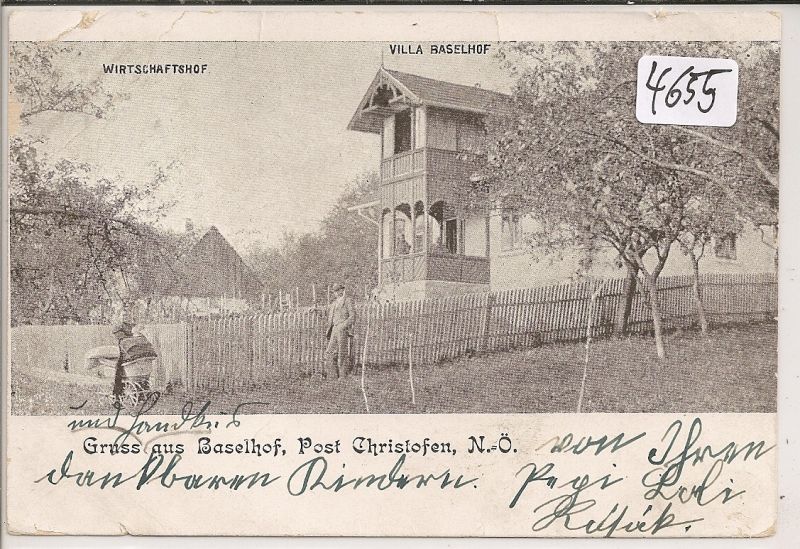 VILLA BASELHOF
WIRTSCHAFTSHOF
4655
und Handkuss
Gruss aus Baselhof, Post Christofen, N.-Ö.
von Ihren
dankbaren Kindern. Pepi Loli